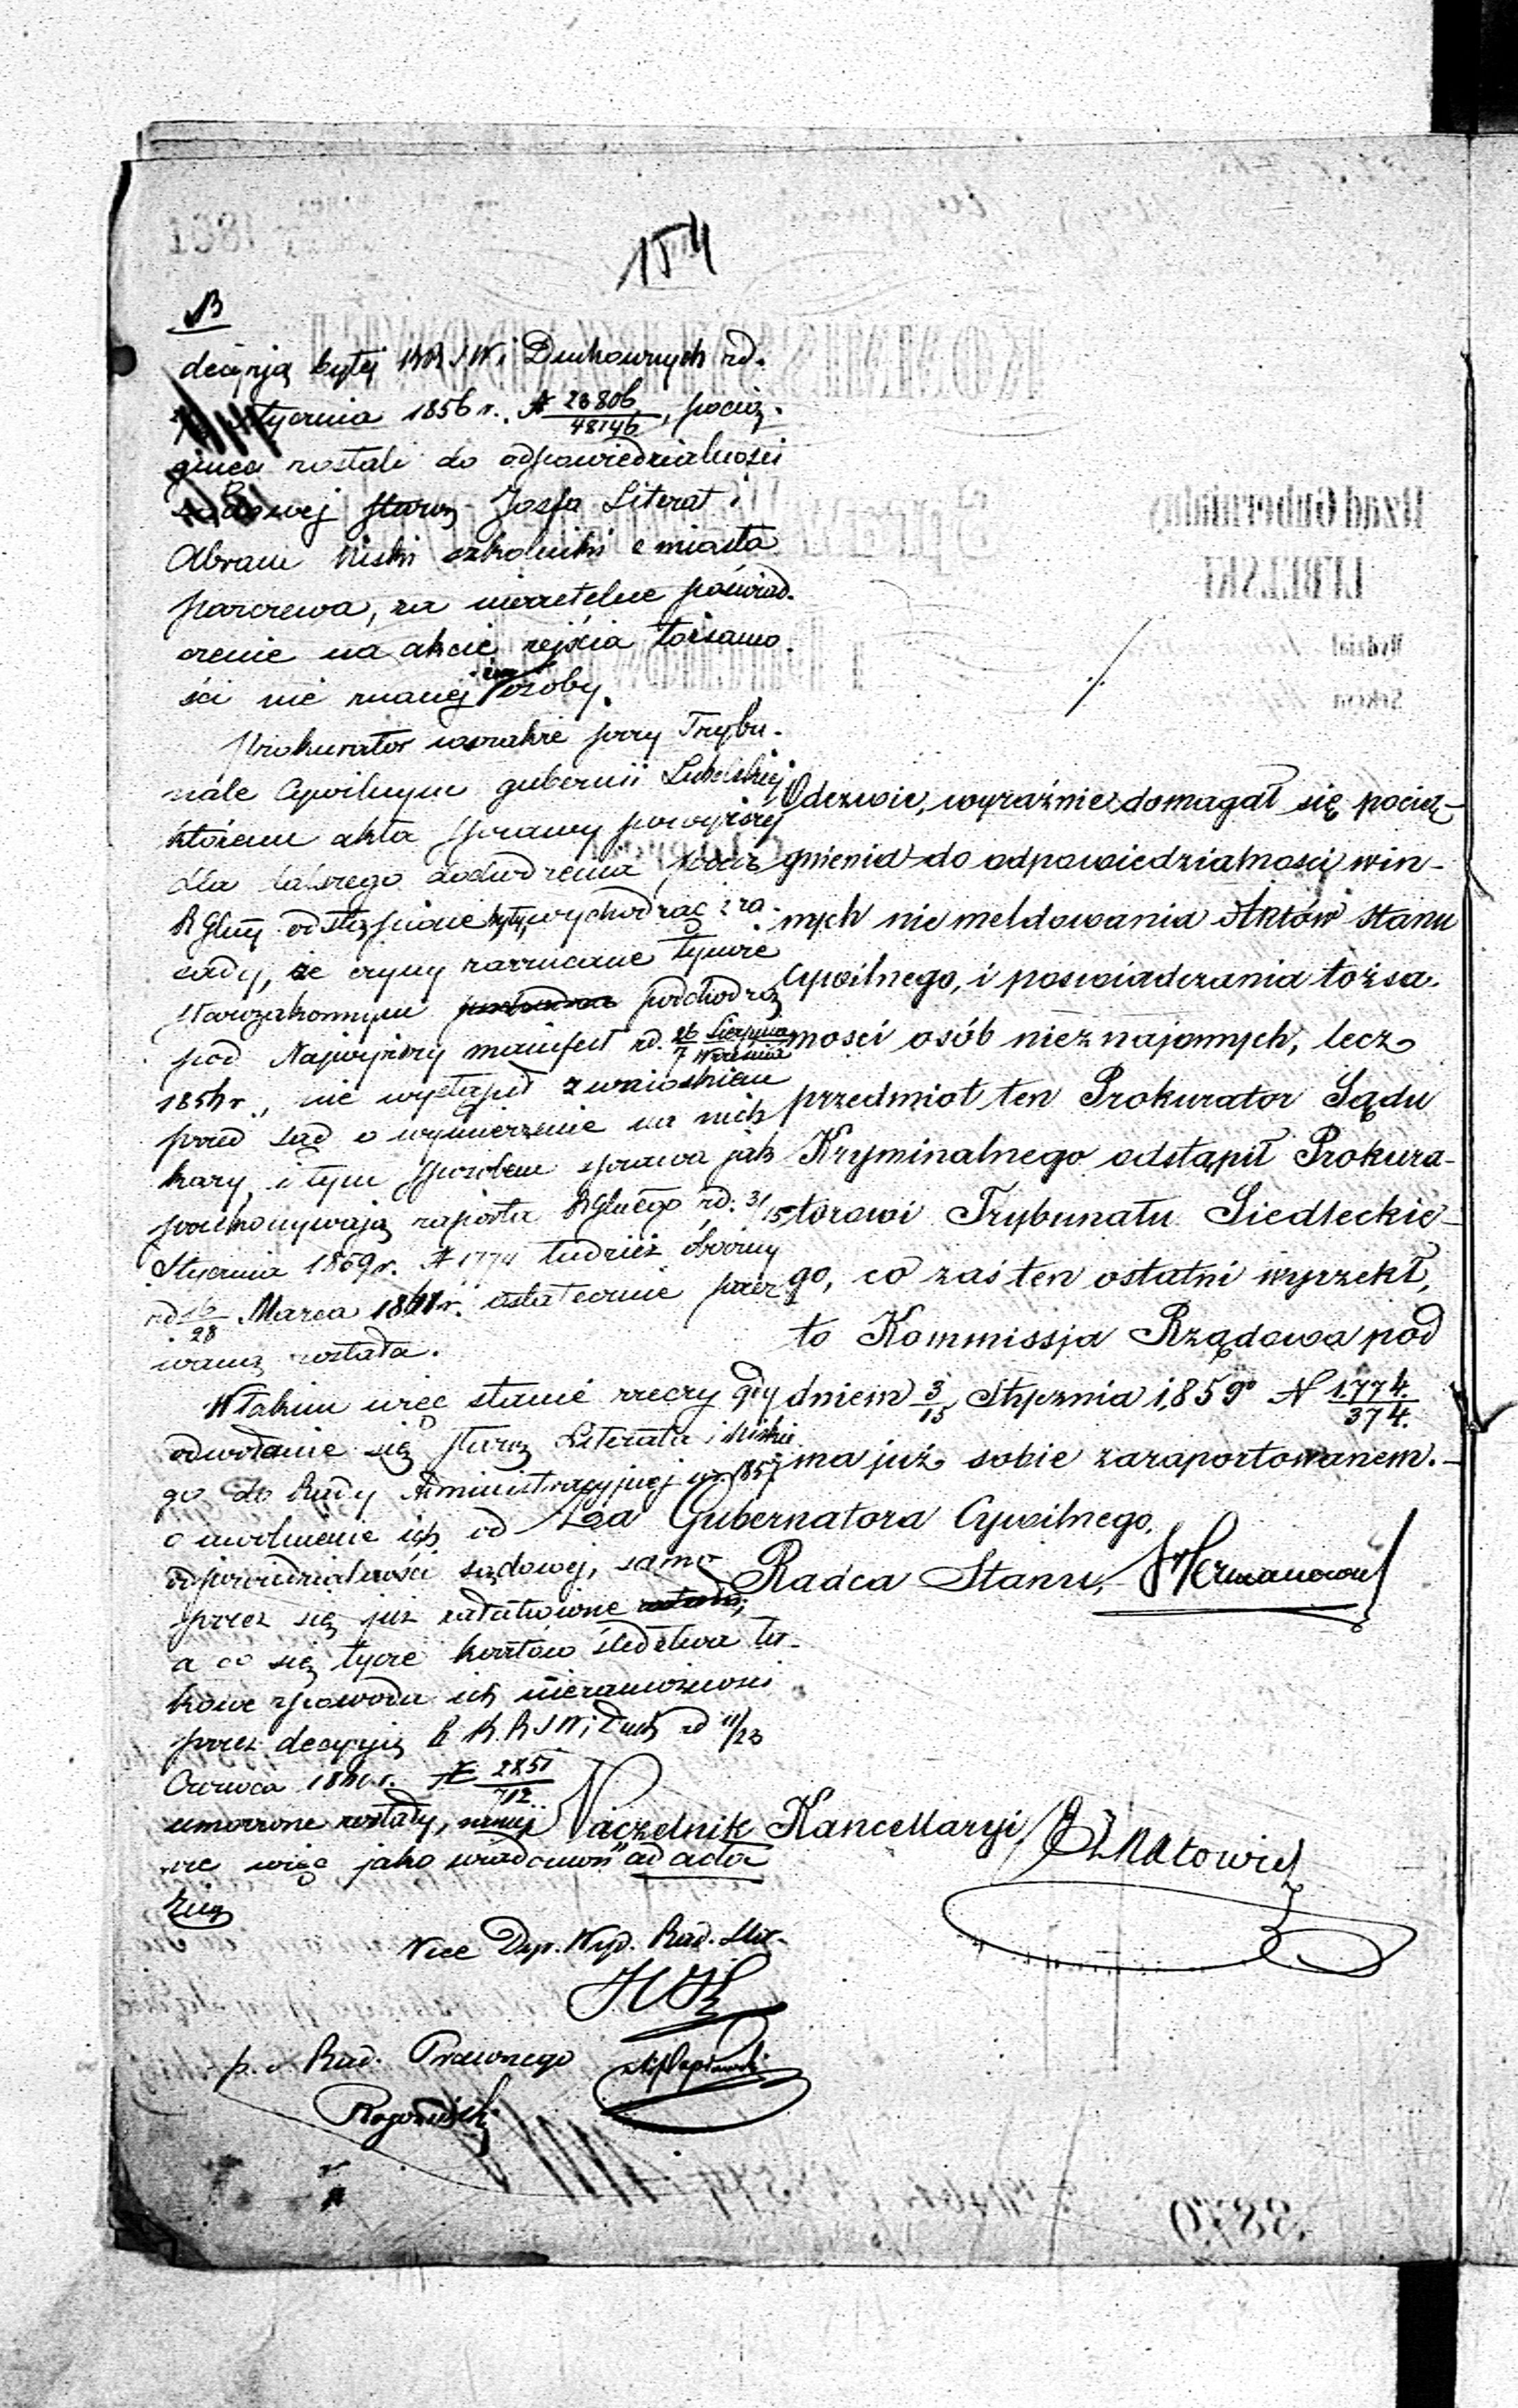 154
NB
decyzją byłej KRSW i Duchownych z d.
Stycznia 1856 r. N 23806/48146, pociąg-
gnieci zostali do odpowiedzialności
sądowej starz. Josfa Literat i
Abram Niski szkolniki z miasta
Parczewa, za nierzetelne poświad-
czenie na akcie zejścia tożsamo-
ści nie znanej im osoby.
Prokurator wszakże przy Trybu-
nale Cywilnym gubernii Lubelskiej
któremu akta sprawy powyższej
dla dalszego dochodzenia przez
RGlny odstąpione były, wychodząc z za-
sady, że czyny zarzucane tymże
starozakonnym podchodzą
pod Najwyższy manifest z d. 26 Sierpnia/7 Września
1856 r., nie wystąpił z wnioskiem
przed Sąd o wymierzenie na nich
kary, i tym sposobem sprawa jak
przekonywają raporta RGlnego z d. 3/15
Stycznia 1859 r. N 1774 tudzież obecny
z d. 16/28 Marca 1861 r. ostatecznie
została.
W takim więc stanie rzeczy gdy
odwołanie się starz. Literata i Niskie
go do Rady Administracyjnej w r. 1857
o uwolnienie ich od
odpowiedzialności sądowej, samo
przez się już załatwione
a co się tycze kosztów śledztwa ta-
kowe z powodu ich niezamożności
przez decyzją B. K.R.S.W. i Duch. z d. 11/23
Czerwca N 2851/712
umorzone zostały,
więc jako wiadomość "ad acta
Vice Dyr. Wyd. Rad. Sta.
p. o. Rad. Prawnego
Odezwie, wyraźnie domagał się pocią-
gnienia do odpowiedzialności win-
nych nie meldowania Aktów stanu
cywilnego, i poswiadczania tożsa-
mości osób nieznajomych, lecz
przedmiot ten Prokurator Sądu
Kryminalnego odstąpił Prokura-
torowi Trybunału Siedleckie-
go, co zaś ten ostatni wyrzekł,
to Kommissja Rządowa pod
dniem 3/15 Stycznia 1859 N 1774/374.
ma już sobie zaraportowanem.
Za Gubernatora Cywilnego,
Radca Stanu,
Naczelnik Kancellaryi